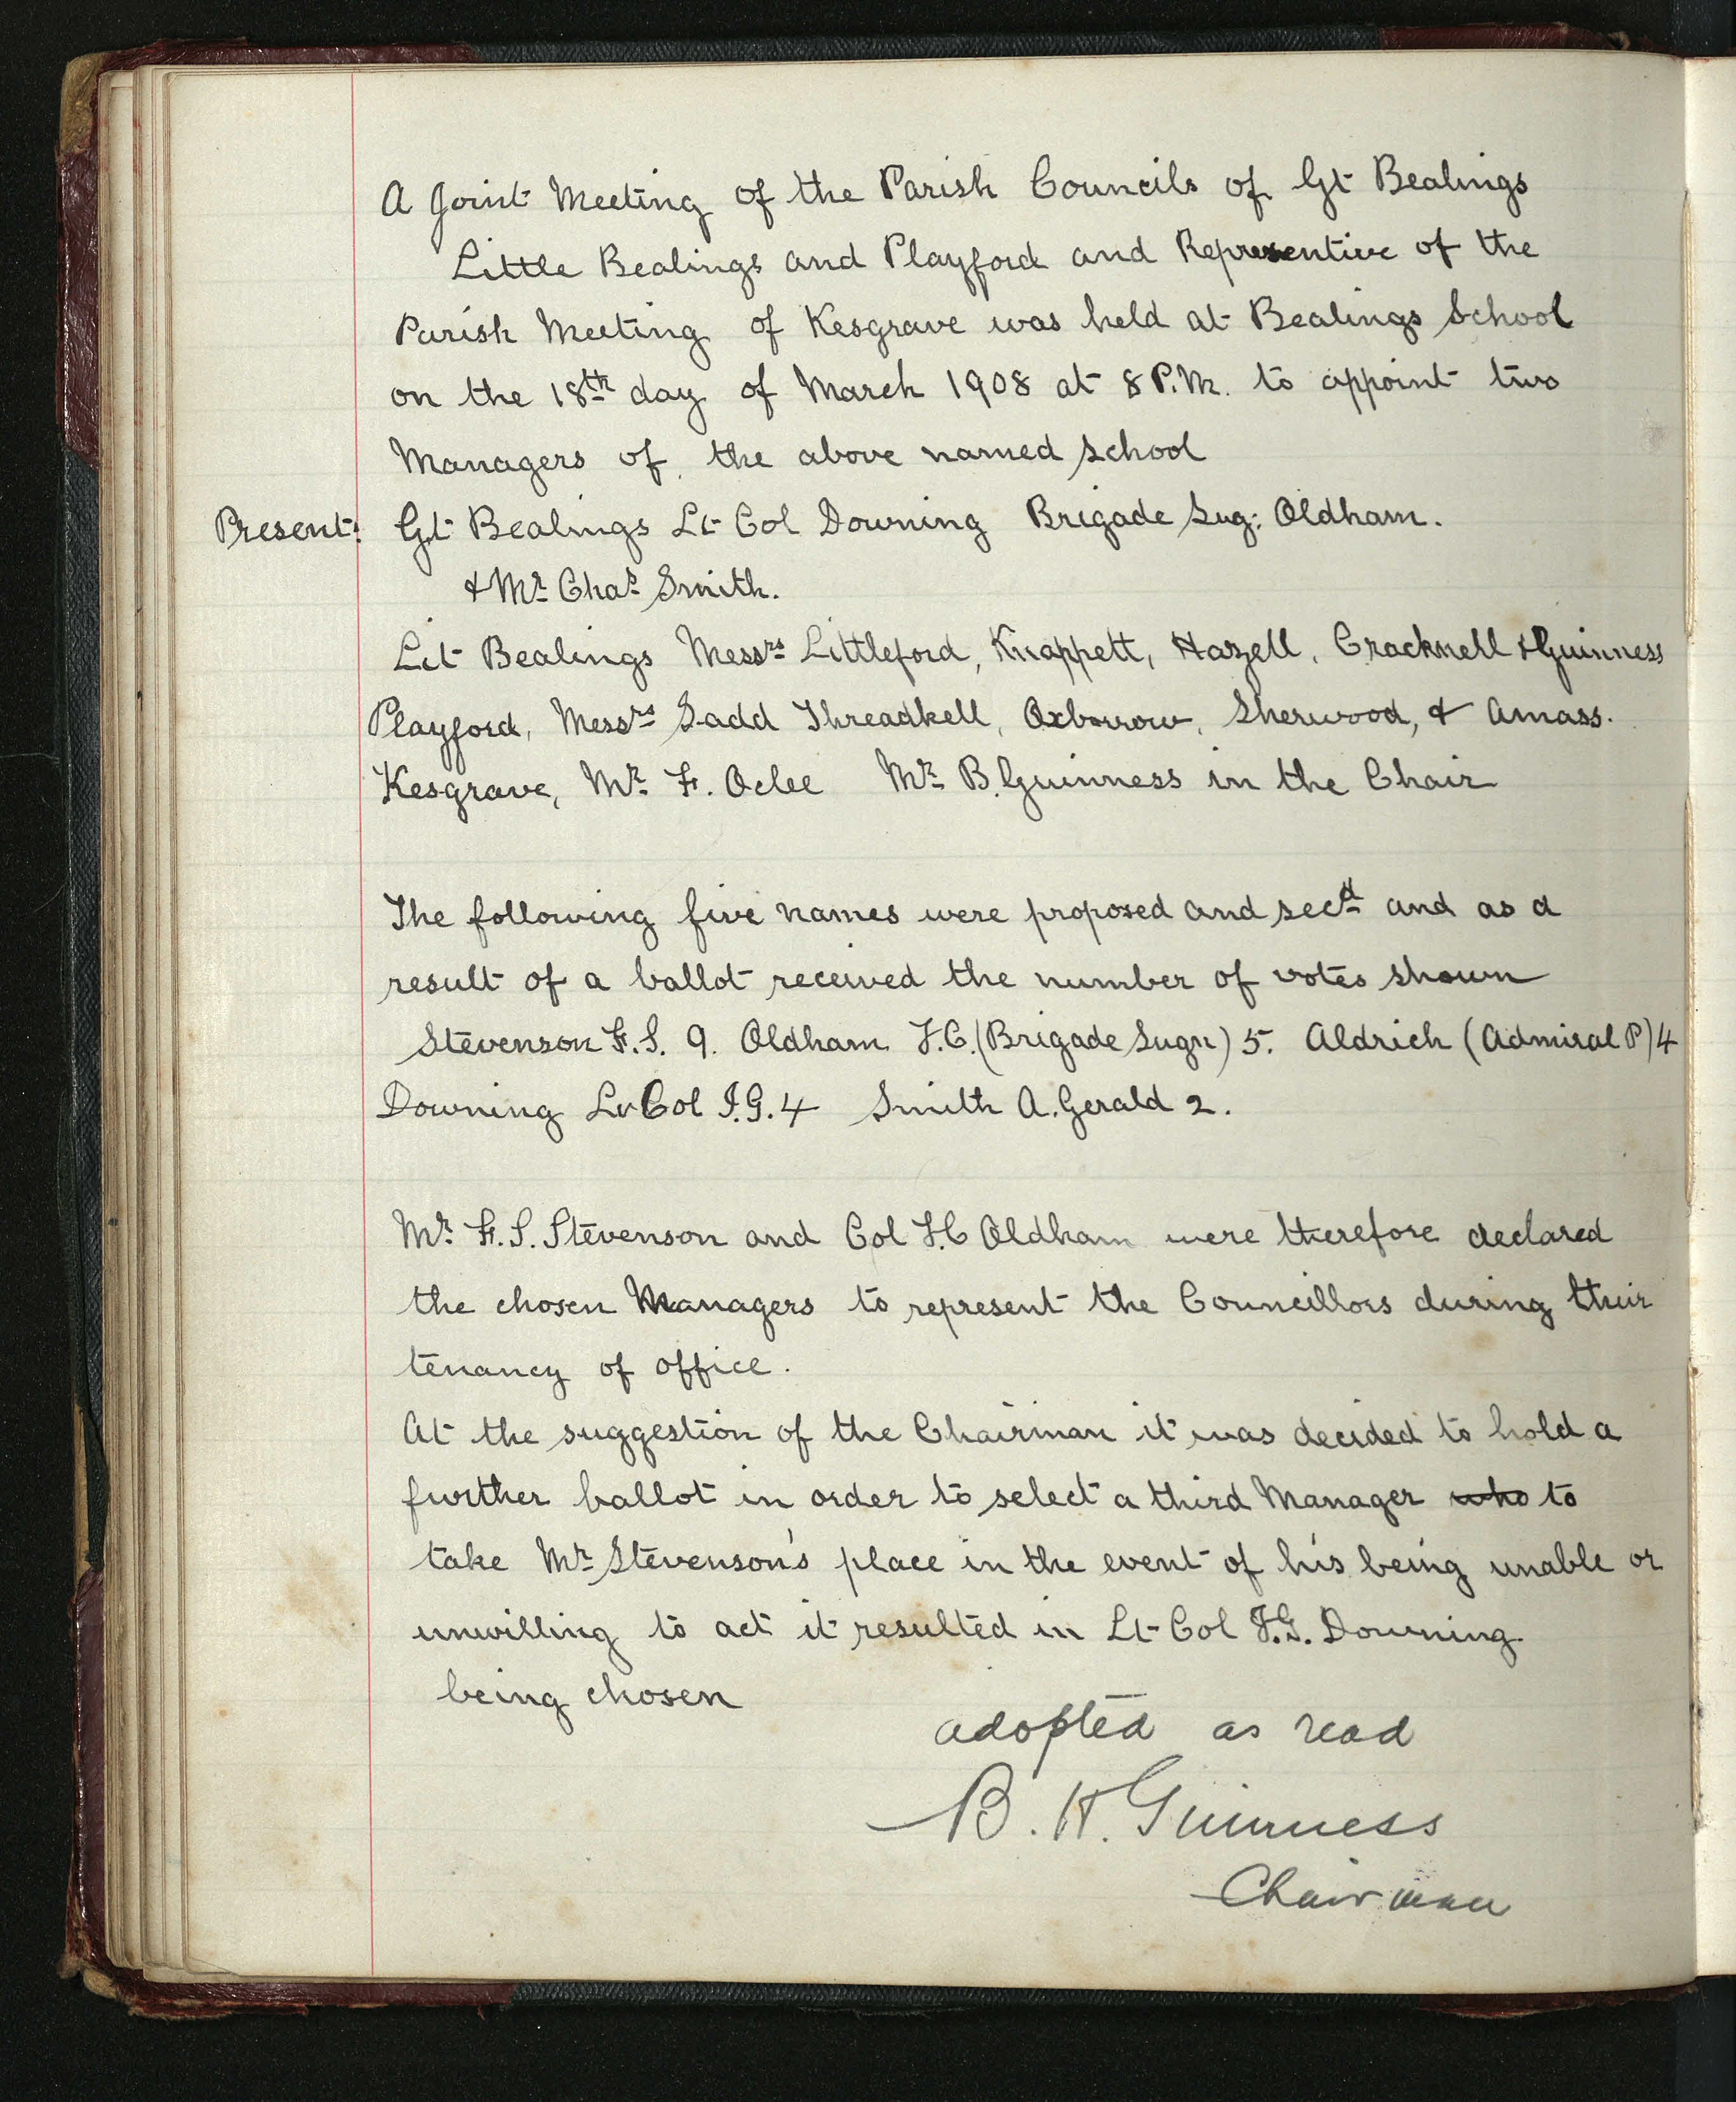 A Joint Meeting of the Parish Councils of Gt Bealings
Little Bealings and Playford and Representive of the
Parish Meeting of Kesgrave was held at Bealings School
on the 18th day of March 1908 at 8 P.M. to appoint two
Managers of the above named school
Present: Gt Bealings Lt Col Downing Brigade Surg: Oldham.
& Mr Chas Smith.
Lit Bealings Messrs Littleford, Knappett, Hazell, Cracknell & Guinness
Playford, Messrs Ladd Threadkell, Oxborrow, Sherwood, & Amass.
Kesgrave, Mr F. Oclee Mr B. Guinness in the Chair
The following five names were proposed and secd and as a
result of a ballot received the number of votes shown
Stevenson F.S. 9. Oldham F.C. (Brigade Surgn) 5. Aldrich (Admiral P) 4
Downing Lt Col F.G. 4 Smith A. Gerald 2.
Mr F.S. Stevenson and Col F.C Oldham were therefore declared
the chosen Managers to represent the Councillors during their
tenancy of office.
At the suggestion of the Chairman it was decided to hold a
further ballot in order to select a third Manager who to
take Mr Stevenson's place in the event of his being unable or
unwilling to act it resulted in Lt Col F.G. Downing
being chosen
adopted as read
B. H. Guinness
Chairman